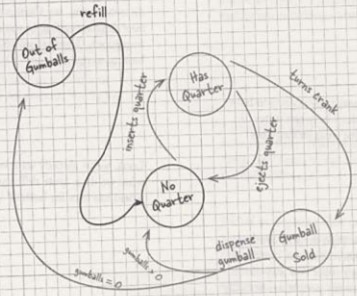 refill
Out of
Gumballs
Has
Quarter
inserts quarter
turns crank
ejects quarter
No
Quarter
Gumball
Sold
dispense
gumball
gumballs > 0
gumballs = 0